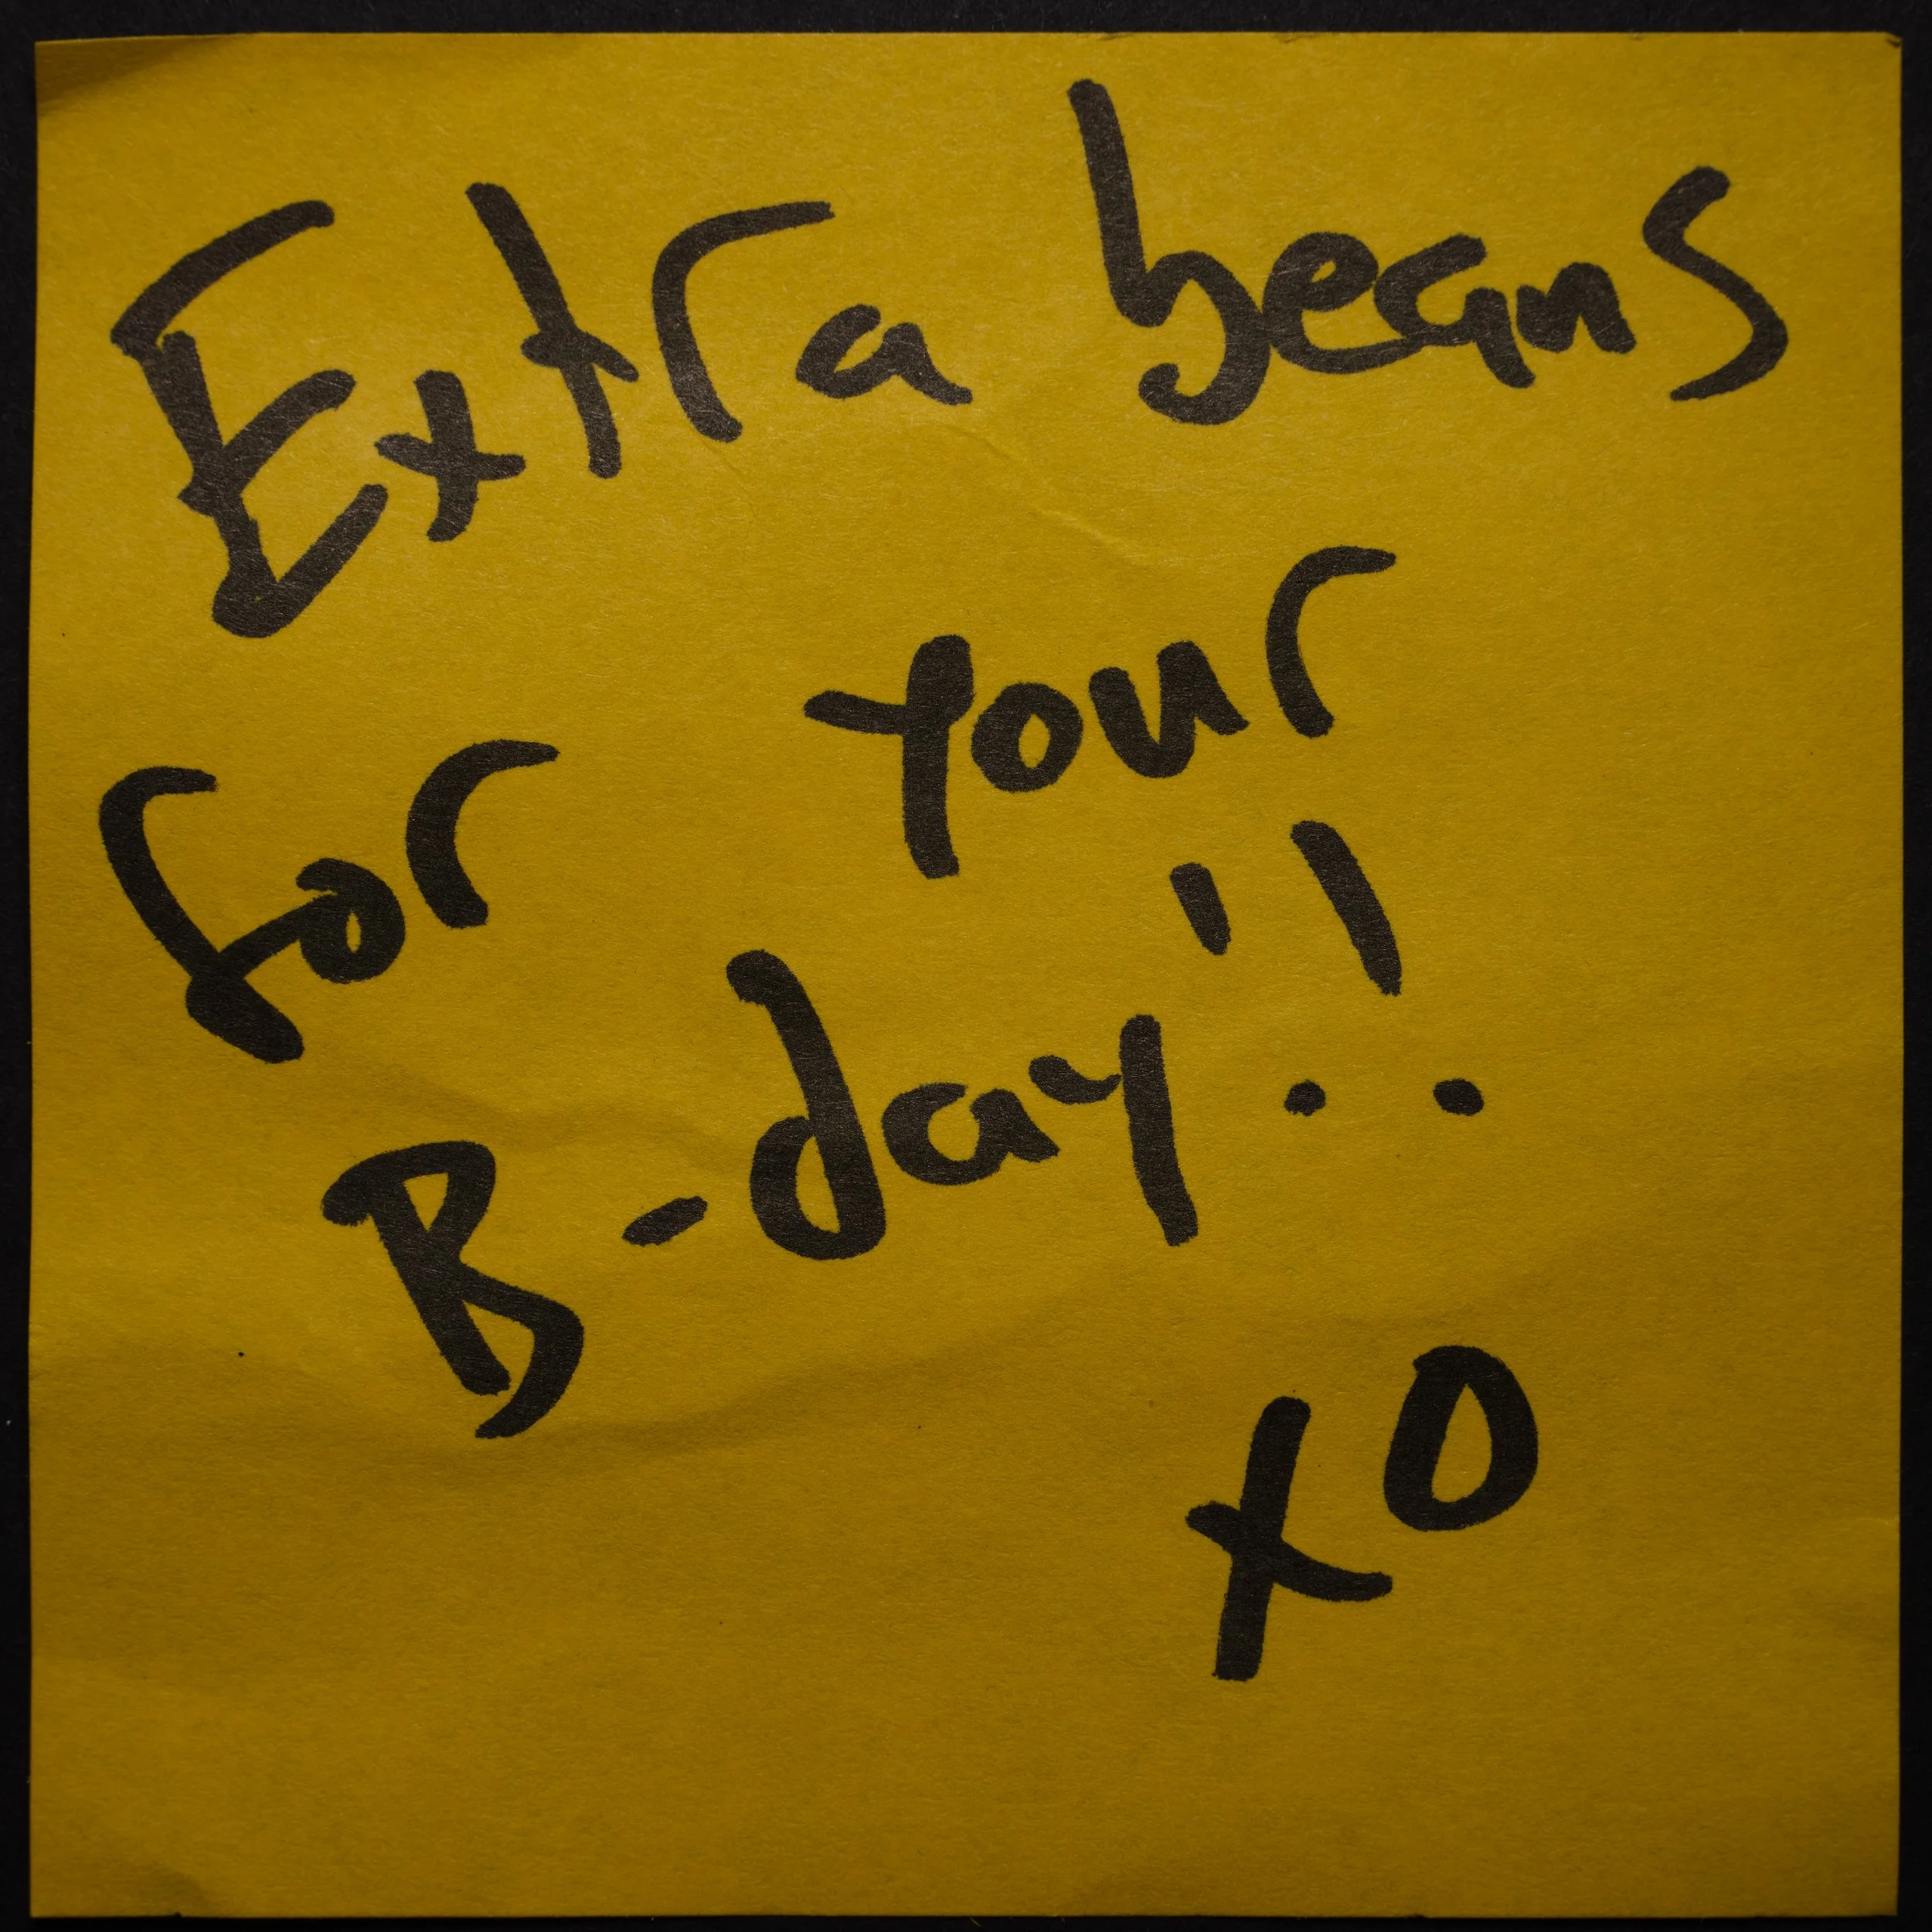 Extra beans
for your
B-day!!
xo